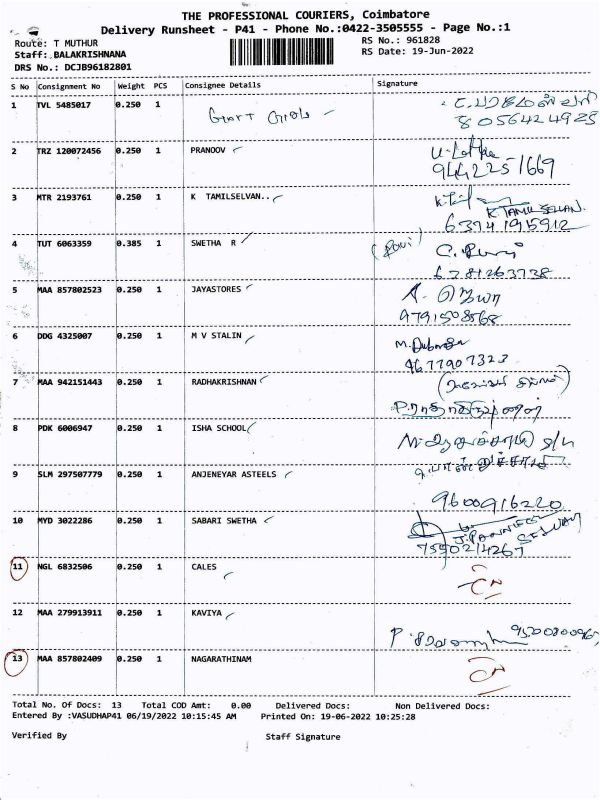 THE PROFESSIONAL COURIERS, Coimbatore
Delivery Runsheet - P41 - Phone No.:0422-3505555 - Page No.:1
Route: T MUTHUR
RS No.: 961828
Staff: BALAKRISHNANA
RS Date: 19-Jun-2022
DRS No.: DCJB96182801
S No Consignment No Weight PCS Consignee Details Signature
1 TVL 5485017 0.250 1
8056424925
2 TRZ 120072456 0.250 1 PRANOOV
9442251669
3 MTR 2193761 0.250 1 K TAMILSELVAN..
K TAMIL SELVAN.
63941915912
4 TUT 6063359 0.385 1 SWETHA R
6781263738
5 MAA 857802523 0.250 1 JAYASTORES
A. ஜெயா
9791508568
6 DDG 4325007 0.250 1 M V STALIN
9677907323
7 MAA 942151443 0.250 1 RADHAKRISHNAN
P.ராதாகிருஷ்ணன்
8 PDK 6006947 0.250 1 ISHA SCHOOL
9 SLM 297507779 0.250 1 ANJENEYAR ASTEELS
9600916220
10 MYD 3022286 0.250 1 SABARI SWETHA
J.PANNEER SELVAM
7550214267
11 NGL 6832506 0.250 1 CALES
12 MAA 279913911 0.250 1 KAVIYA
13 MAA 857802409 0.250 1 NAGARATHINAM
Total No. Of Docs: 13 Total COD Amt: 0.00 Delivered Docs: Non Delivered Docs:
Entered By :VASUDHAP41 06/19/2022 10:15:45 AM Printed On: 19-06-2022 10:25:28
Verified By Staff Signature